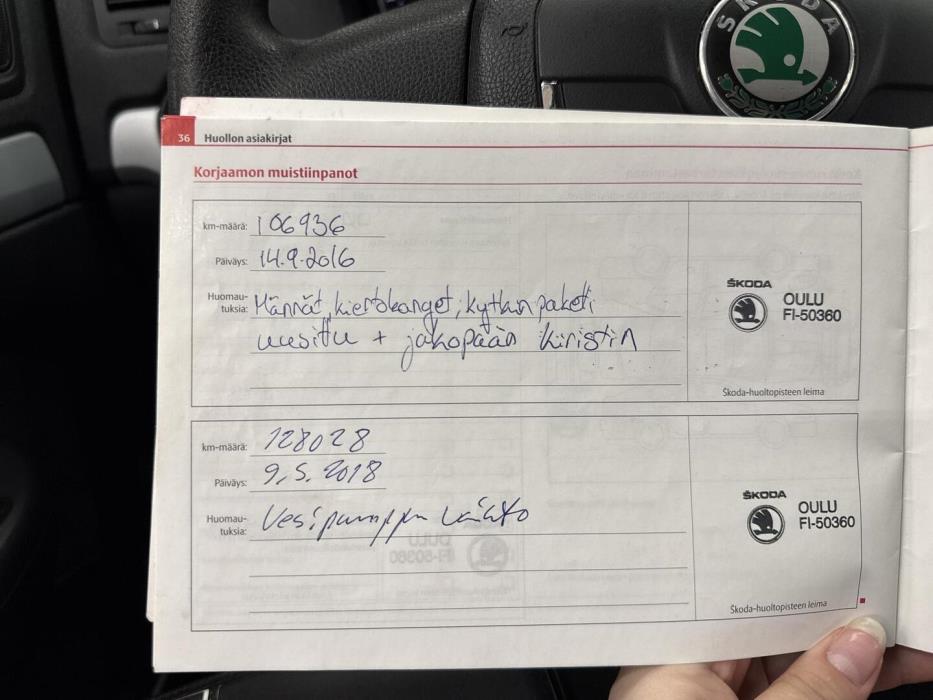 ŠKODA
36 Huollon asiakirjat
Korjaamon muistiinpanot
km-määrä: 106936
Päiväys: 14.9.2016
Huomau-
tuksia: Männät, kiertokanget, kytkinpaketi
uusittu + jakopään kiristin
ŠKODA
OULU
FI-50360
Škoda-huoltopisteen leima
km-määrä: 128028
Päiväys: 9.5.2018
Huomau-
tuksia: Vesipumppu vaihto
ŠKODA
OULU
FI-50360
Škoda-huoltopisteen leima